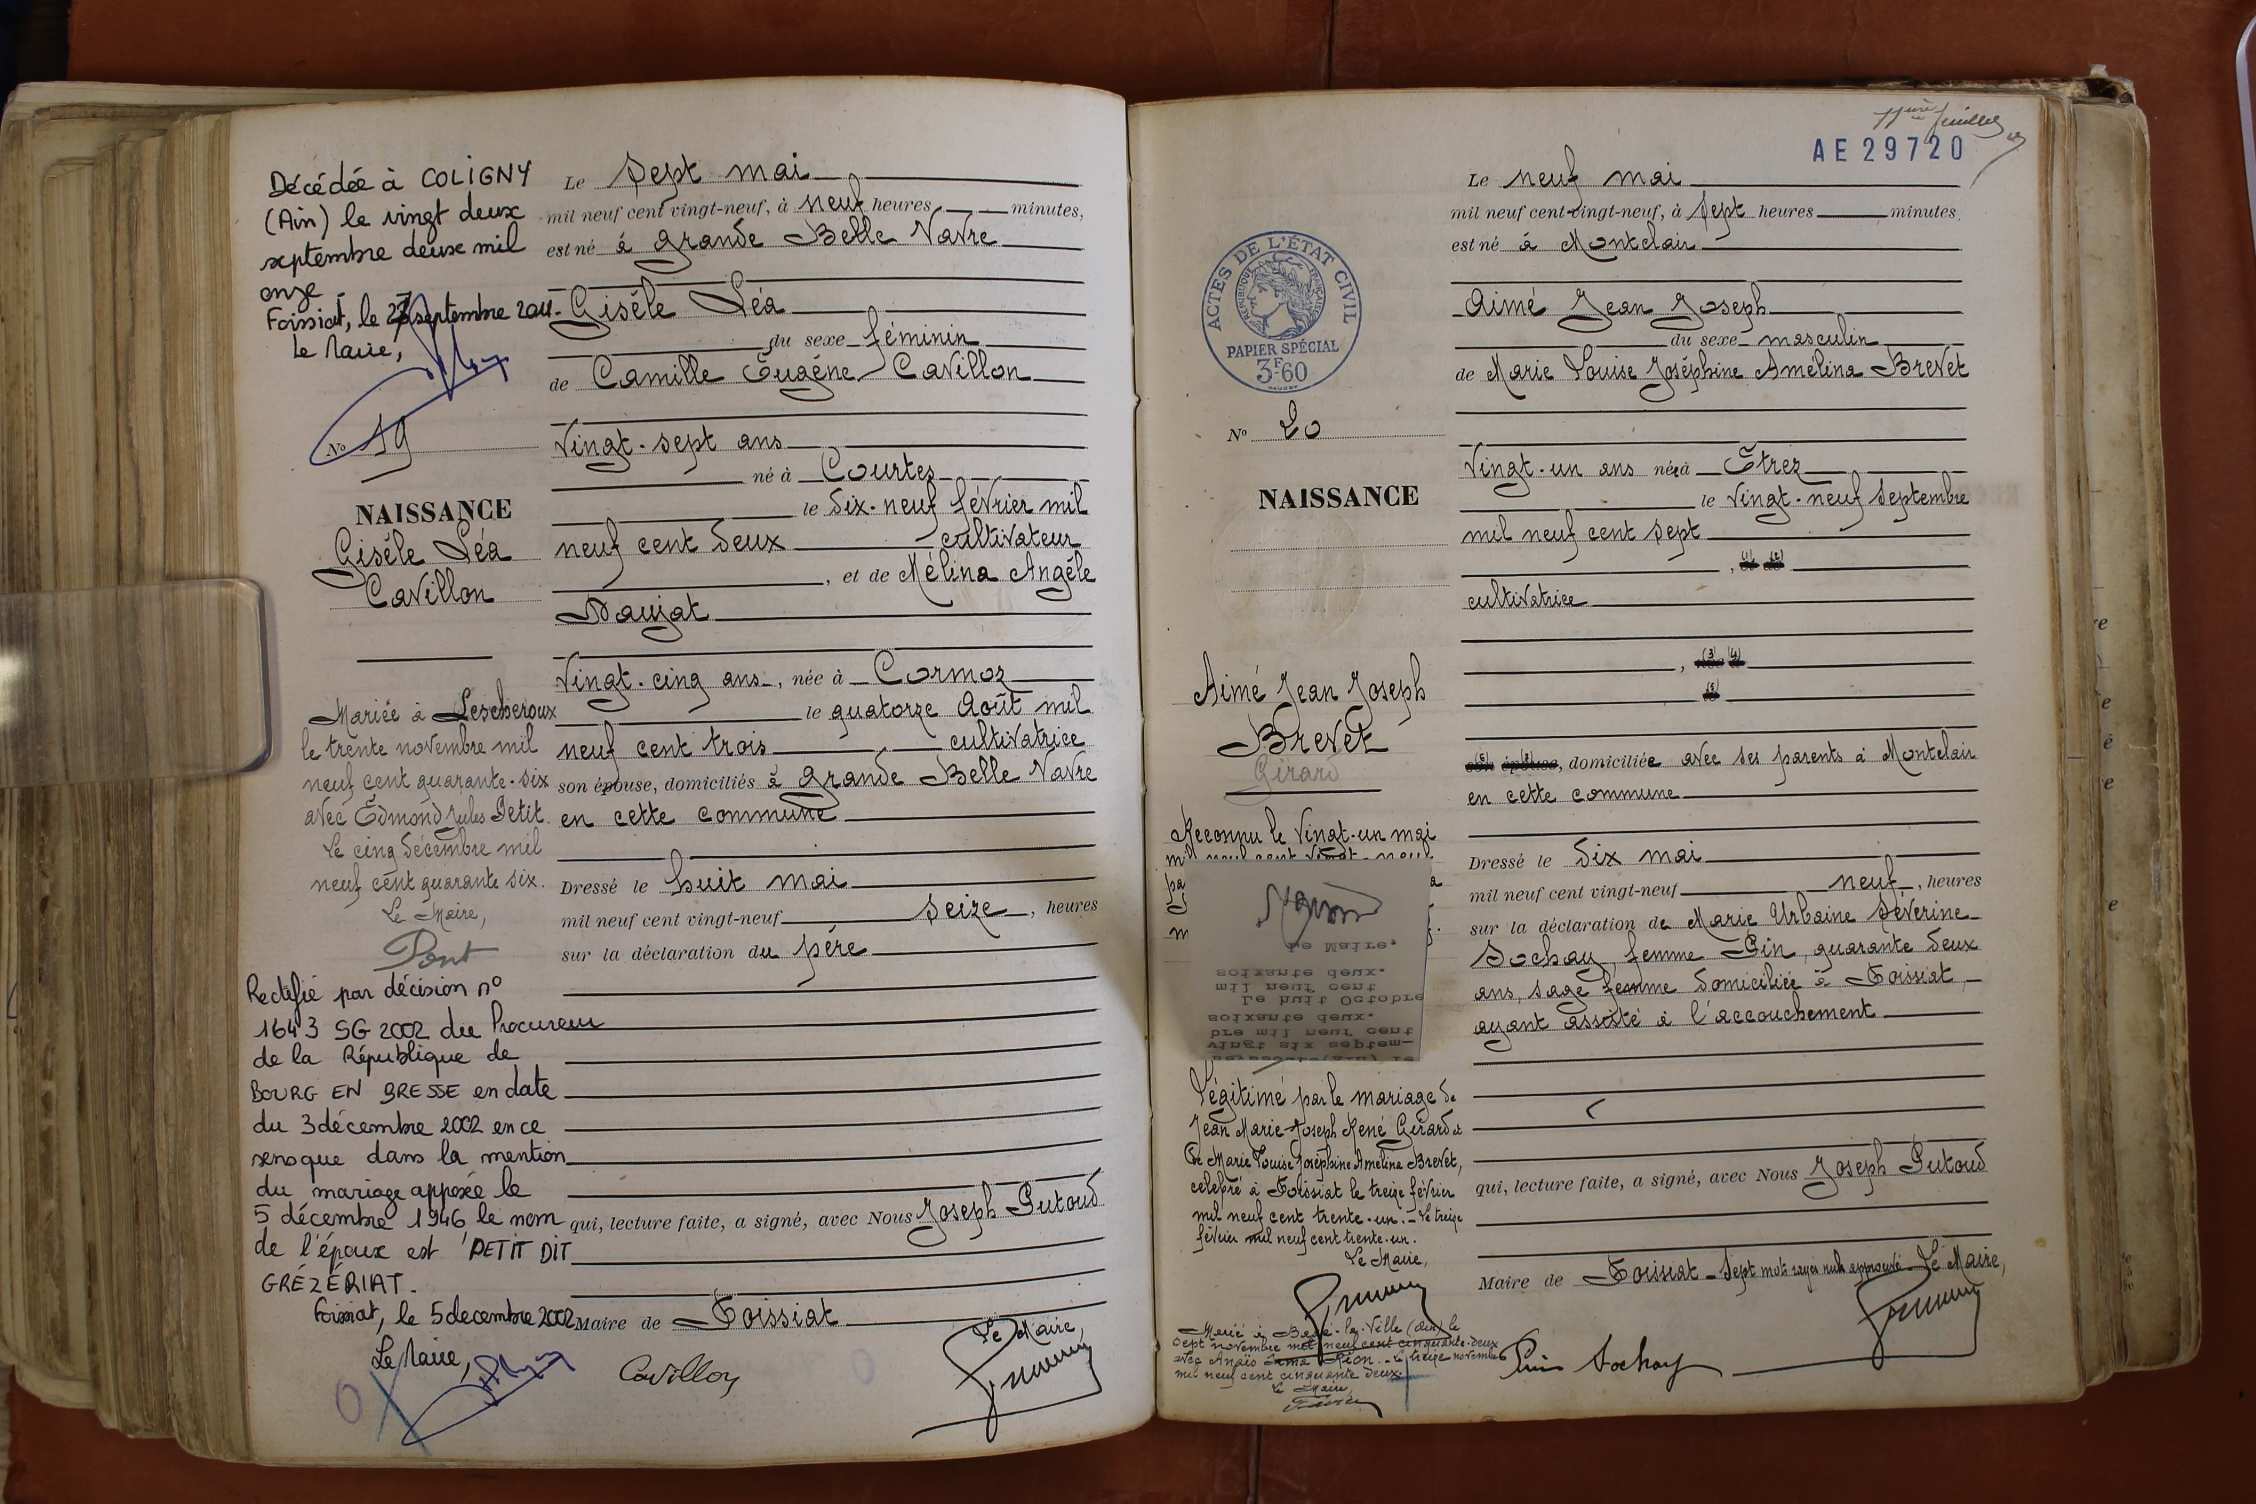 Décédée à COLIGNY
(Ain) le vingt deux
septembre deux mil
onze -
Foissiat, le 27 septembre 2011.
Le Maire,
No 19
NAISSANCE
Gisèle Léa
Cavillon
Mariée à Lescheroux
le trente novembre mil
neuf cent quarante-six
avec Edmond Jules Petit.
Le cinq décembre mil
neuf cent quarante six.
Le Maire,
Pont
Rectifié par décision n°
1643 SG 2002 du Procureur
de la République de
BOURG EN BRESSE en date
du 3 décembre 2002 en ce
sens que dans la mention
du mariage apposée le
5 décembre 1946 le nom
de l'époux est "PETIT DIT
GRÉZÉRIAT.
Foissiat, le 5 decembre 2002
Le Maire,
Le sept mai
mil neuf cent vingt-neuf, à neuf heures, minutes,
est né à Grande Belle Vavre
Gisèle Léa
du sexe féminin
de Camille Eugène Cavillon
vingt-sept ans
né à Courtes
le dix-neuf février mil
neuf cent deux cultivateur
, et de Mélina Angèle
Daujat
vingt-cinq ans, née à Cormoz
le quatorze Août mil
neuf cent trois cultivatrice
son épouse, domiciliés à Grande Belle Vavre
en cette commune
Dressé le huit mai
mil neuf cent vingt-neuf seize, heures
sur la déclaration du père
qui, lecture faite, a signé, avec Nous Joseph Putoud
Maire de Foissiat
Le Maire,
Cavillon
11ème feuillet
AE 29720
ACTES DE L'ÉTAT CIVIL
RÉPUBLIQUE FRANÇAISE
PAPIER SPÉCIAL
3F60
No 20
NAISSANCE
Aimé Jean Joseph
Brevet
Girard
Reconnu le vingt-un mai
mil neuf cent vingt-neuf
Le Maire,
soixante deux.
mil neuf cent
Le huit Octobre
soixante deux.
bre mil neuf cent
vingt six septem-
Légitimé par le mariage de
Jean Marie Joseph René Girard et
de Marie Louise Joséphine Amélina Brevet,
célébré à Foissiat le treize février
mil neuf cent trente-un. - Le treize
février mil neuf cent trente-un.
Le Maire,
Marié à Bâgé-la-Ville (Ain) le
sept novembre mil neuf cent cinquante-deux
avec Anaïs Irma Pion. - Le treize novembre
mil neuf cent cinquante deux.
Le Maire,
Le neuf mai
mil neuf cent vingt-neuf, à sept heures minutes,
est né à Montclair
Aimé Jean Joseph
du sexe masculin
de Marie Louise Joséphine Amélina Brevet
vingt-un ans née à Étrez
le vingt-neuf septembre
mil neuf cent sept
, (1) (2)
cultivatrice
, (3) (4)
(5)
(6) (7), domiciliée avec ses parents à Montclair
en cette commune
Dressé le dix mai
mil neuf cent vingt-neuf neuf, heures
sur la déclaration de Marie Urbaine Séverine
Sochay, femme Pin, quarante deux
ans, sage femme domiciliée à Foissiat,
ayant assisté à l'accouchement
qui, lecture faite, a signé, avec Nous Joseph Putoud
Maire de Foissiat - Sept mots rayés nuls approuvé Le Maire,
Pin Sochay